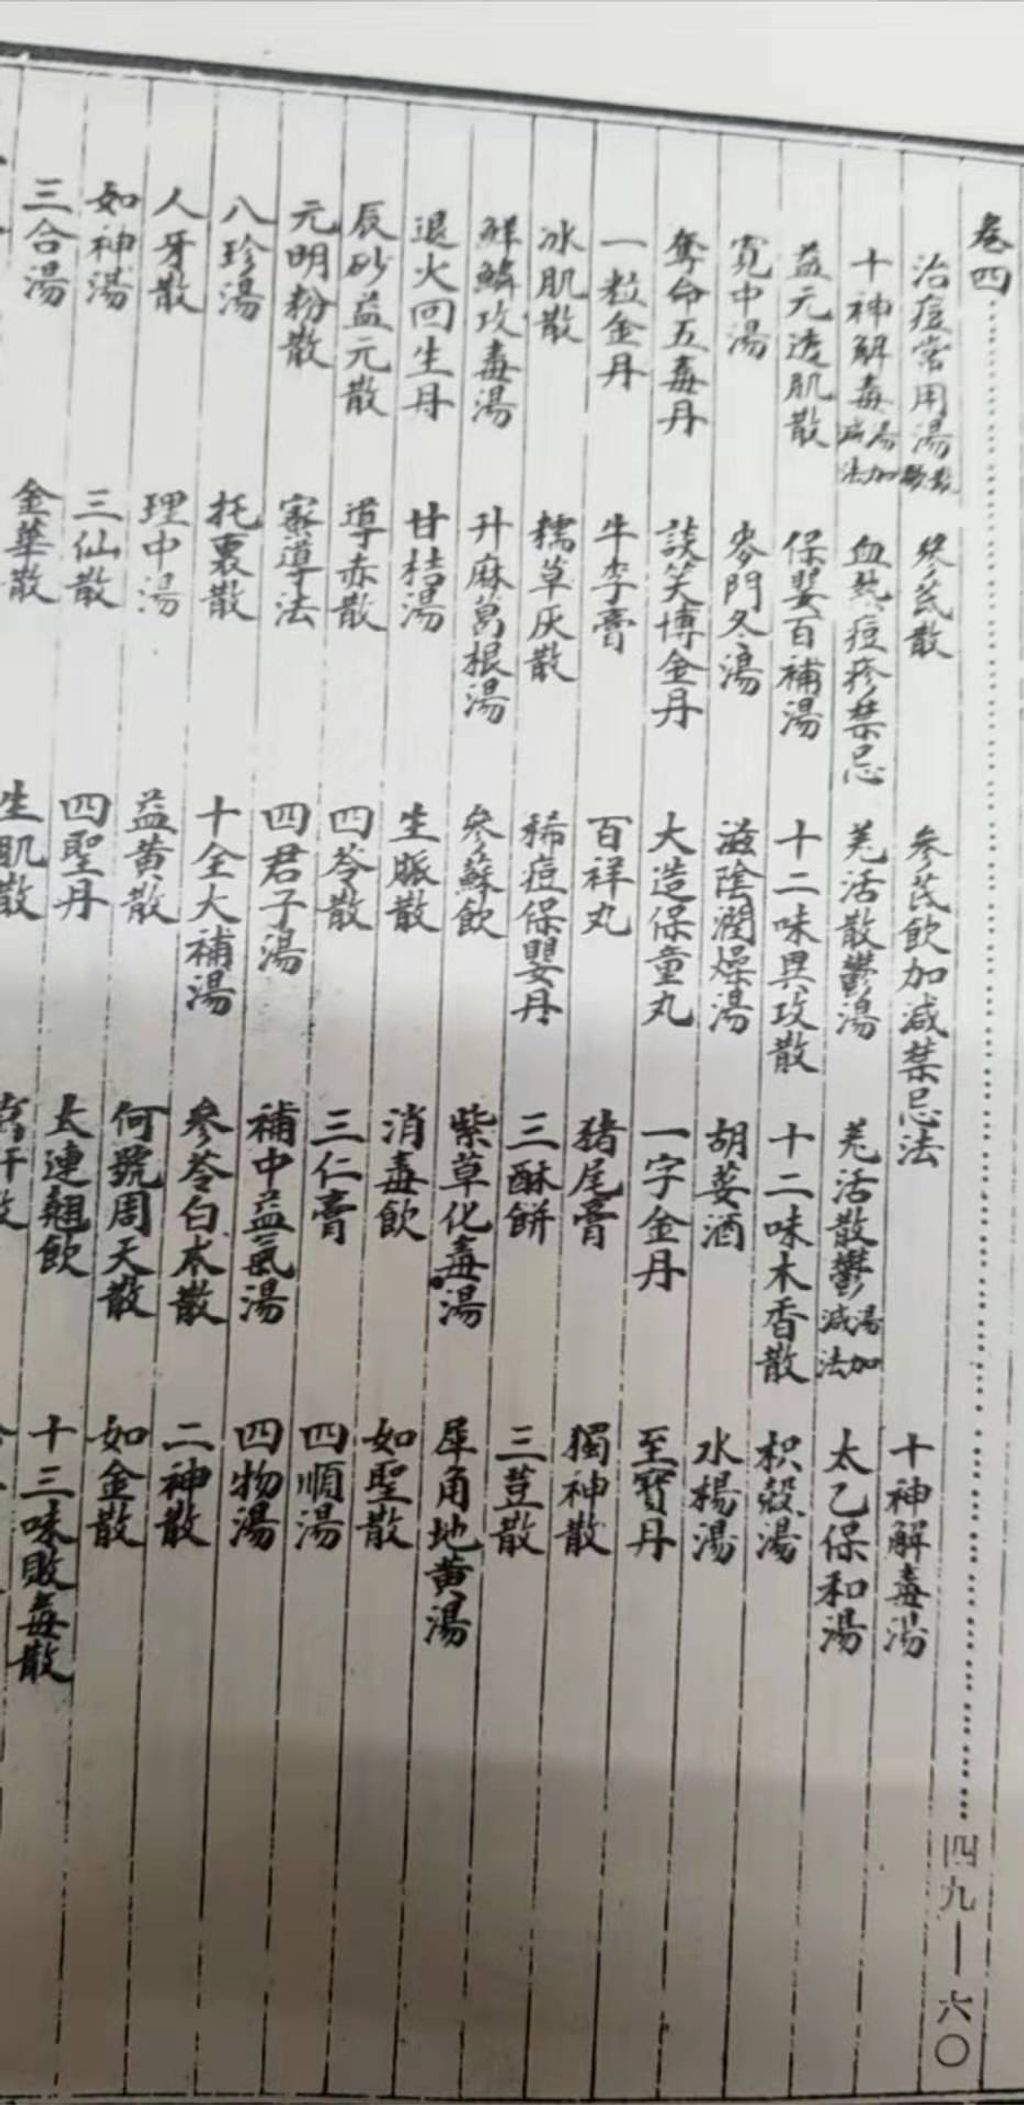 卷四……四九—六〇
治痘常用湯散 參芪散 參芪飲加減禁忌法 十神解毒湯
十神解毒湯加減法 血熱痘疹禁忌 羌活散鬱湯 羌活散鬱湯加減法 太乙保和湯
益元透肌散 保嬰百補湯 十二味異攻散 十二味木香散 枳殼湯
寬中湯 麥門冬湯 滋陰潤燥湯 胡荽酒 水楊湯
奪命五毒丹 談笑博金丹 大造保童丸 一字金丹 至寶丹
一粒金丹 牛李膏 百祥丸 猪尾膏 獨神散
冰肌散 糯草灰散 稀痘保嬰丹 三酥餅 三荳散
鮮鱗攻毒湯 升麻葛根湯 參蘇飲 紫草化毒湯 犀角地黃湯
退火回生丹 甘桔湯 生脈散 消毒飲 如聖散
辰砂益元散 導赤散 四苓散 三仁膏 四順湯
元明粉散 蜜導法 四君子湯 補中益氣湯 四物湯
八珍湯 托裏散 十全大補湯 參苓白朮散 二神散
人牙散 理中湯 益黃散 何號周天散 如金散
如神湯 三仙散 四聖丹 太連翹飲 十三味敗毒散
三合湯 金華散 生肌散